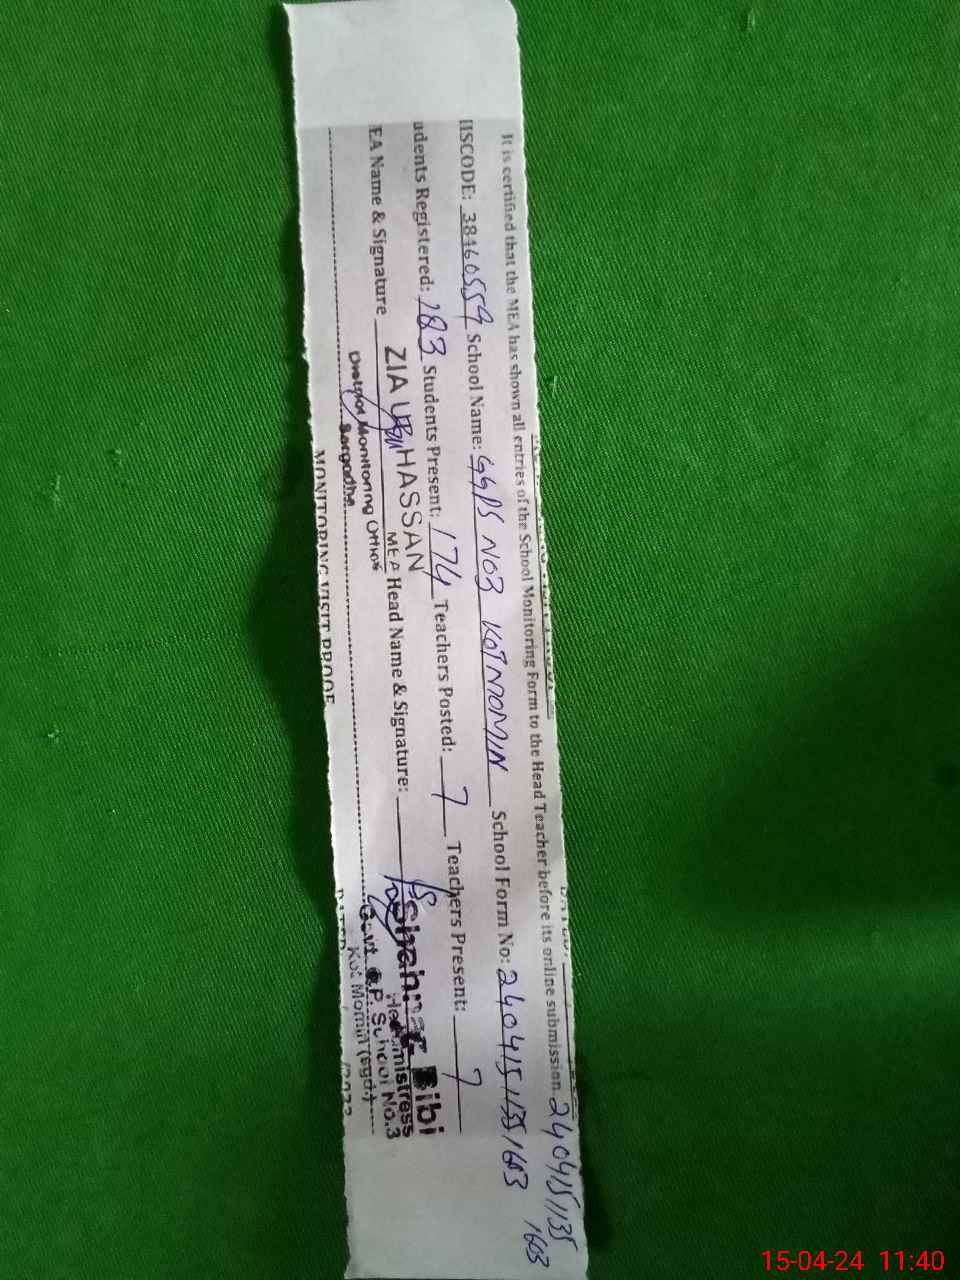 It is certified that the MEA has shown all entries of the School Monitoring Form to the Head Teacher before its online submission. 2404151135
1603
IISCODE: 38460554 School Name: GGPS NO3 KOT MOMIN School Form No: 2404151135 1603
udents Registered: 183 Students Present: 174 Teachers Posted: 7 Teachers Present: 7
EA Name & Signature Head Name & Signature:
ZIA UR HASSAN
MEA
District Monitoring Office
Sargodha
Bibi
Headmistress
Govt. G.P. School No.3
Kot Momin (sgd.)
MONITORING VISIT PROOF
DATED
15-04-24 11:40